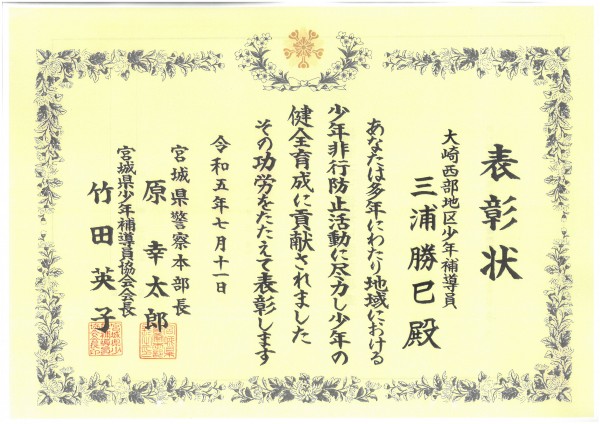 表彰状
大崎西部地区少年補導員
三浦勝巳殿
あなたは多年にわたり地域における
少年非行防止活動に尽力し少年の
健全育成に貢献されました
その功労をたたえて表彰します
令和五年七月十一日
宮城県警察本部長
原幸太郎
宮城県少年補導員協会会長
竹田英子